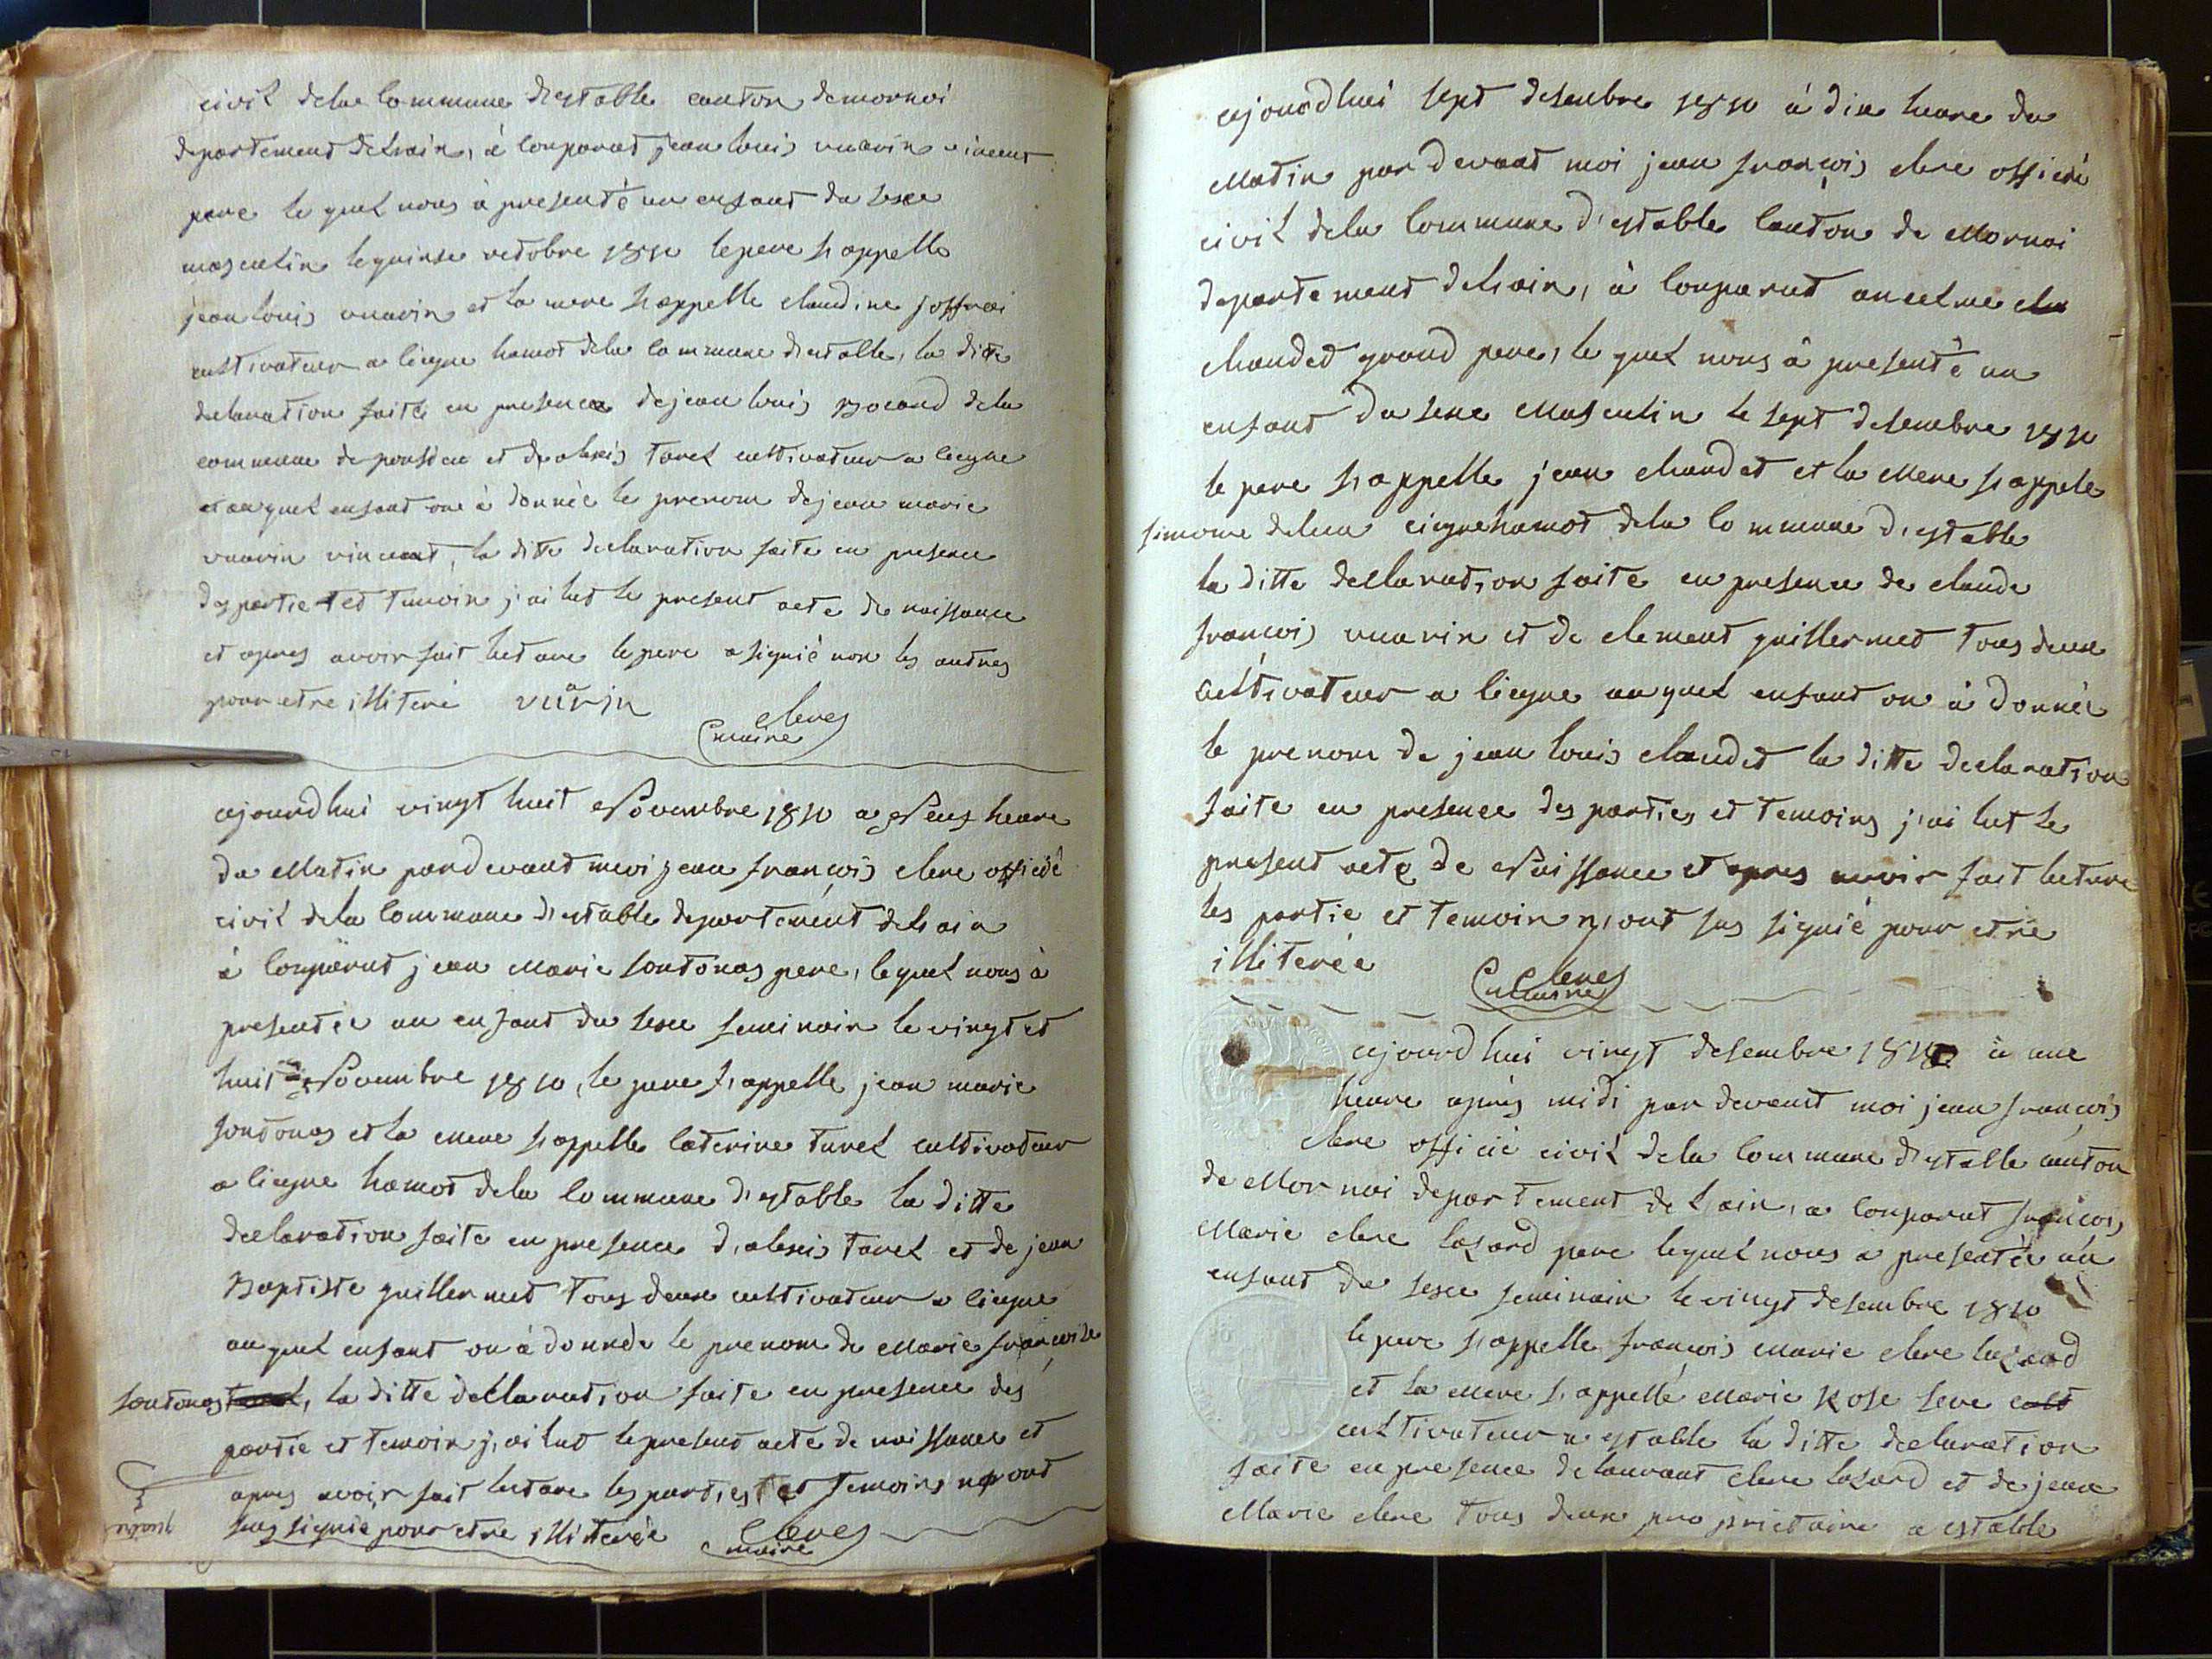 civil dela Commune d'estable canton demornai
departement delain, à comparut jean louis vuarin vincent
pere le quel nous à presenté un enfant du sexe
masculin lequinse octobre 1810 lepere s'appelle
jean louis vuarin et la mere s'appelle claudine joffrai
cultivateur a lieyne hamot dela commune d'estable, la ditte
declaration faitte en presence dejean louis bocand dela
commune de et d'alexis turel cultivateur a lieyne
auquel enfant one à donnée le prenom dejean marie
vuarin vincent, la ditte declaration faite en presence
des partie et temoin j'ai lut le present acte de naissance
et apres avoir fait lecture lepere a signié non les autres
pour etre illiteré vuarin
clere
maire
ajourdhui vingt huit Novembre 1810 a Neuf heure
du Matin pardevant moi jean françois clere officié
civil dela Commune d'estable departement delain
à comparut jean Marie Sontonas pere, lequel nous à
presentée un enfant du sexe feminain le vingt et
huit Novembre 1810, le pere s'appelle jean marie
sontonas et la mere s'appelle Caterine turel cultivateur
a lieyne hamot dela Commune d'estable la ditte
declaration faite en presence d'alexis turel et de jean
Baptiste guillermet tous deux cultivateur a lieyne
auquel enfant on à donnée le prenom de Marie françoise
sontonas, la ditte declaration faite en presence des
partie et temoin j'ai lut lepresent acte de naissance et
apres avoir fait lecture les parties et temoins n'ont
sus signié pour etre illiterée clere
maire
ajourdhui sept desembre 1810 à dix heure du
Matin par devant moi jean françois clere officié
civil dela Commune d'estable Canton de Mornai
departement delain, à comparut anselme
chaudet grand pere, le quel nous à presenté un
enfant du sexe Masculin le sept desembre 1810
le pere s'appelle jean chaudet et la Mere s'appele
simone lieyne hamot dela Commune d'estable
la ditte declaration faite en presence de claude
françois vuarin et de clement guillermet tous deux
cultivateur a lieyne auquel enfant on à donnée
le prenom de jean louis chaudet la ditte declaration
faite en presence des parties et temoins j'ai lut le
present acte de Naissance et apres avoir fait lecture
les partie et temoin n'ont sus signié pour etre
illiterée
clere
maire
ajourdhui vingt desembre 1810 à une
heure après midi par devant moi jean françois
clere officié civil dela Commune d'estable canton
de Mornai departement de lain, a comparut françois
Marie clere lazard pere lequel nous a presentée un
enfant du sexe feminain le vingt desembre 1810
le pere s'appelle françois marie clere lazard
et la Mere s'appelle Marie Rose seve
cultivateur a estable la ditte declaration
faite en presence delaurant clere lazard et de jean
Marie clere tous deux proprietaire a estable